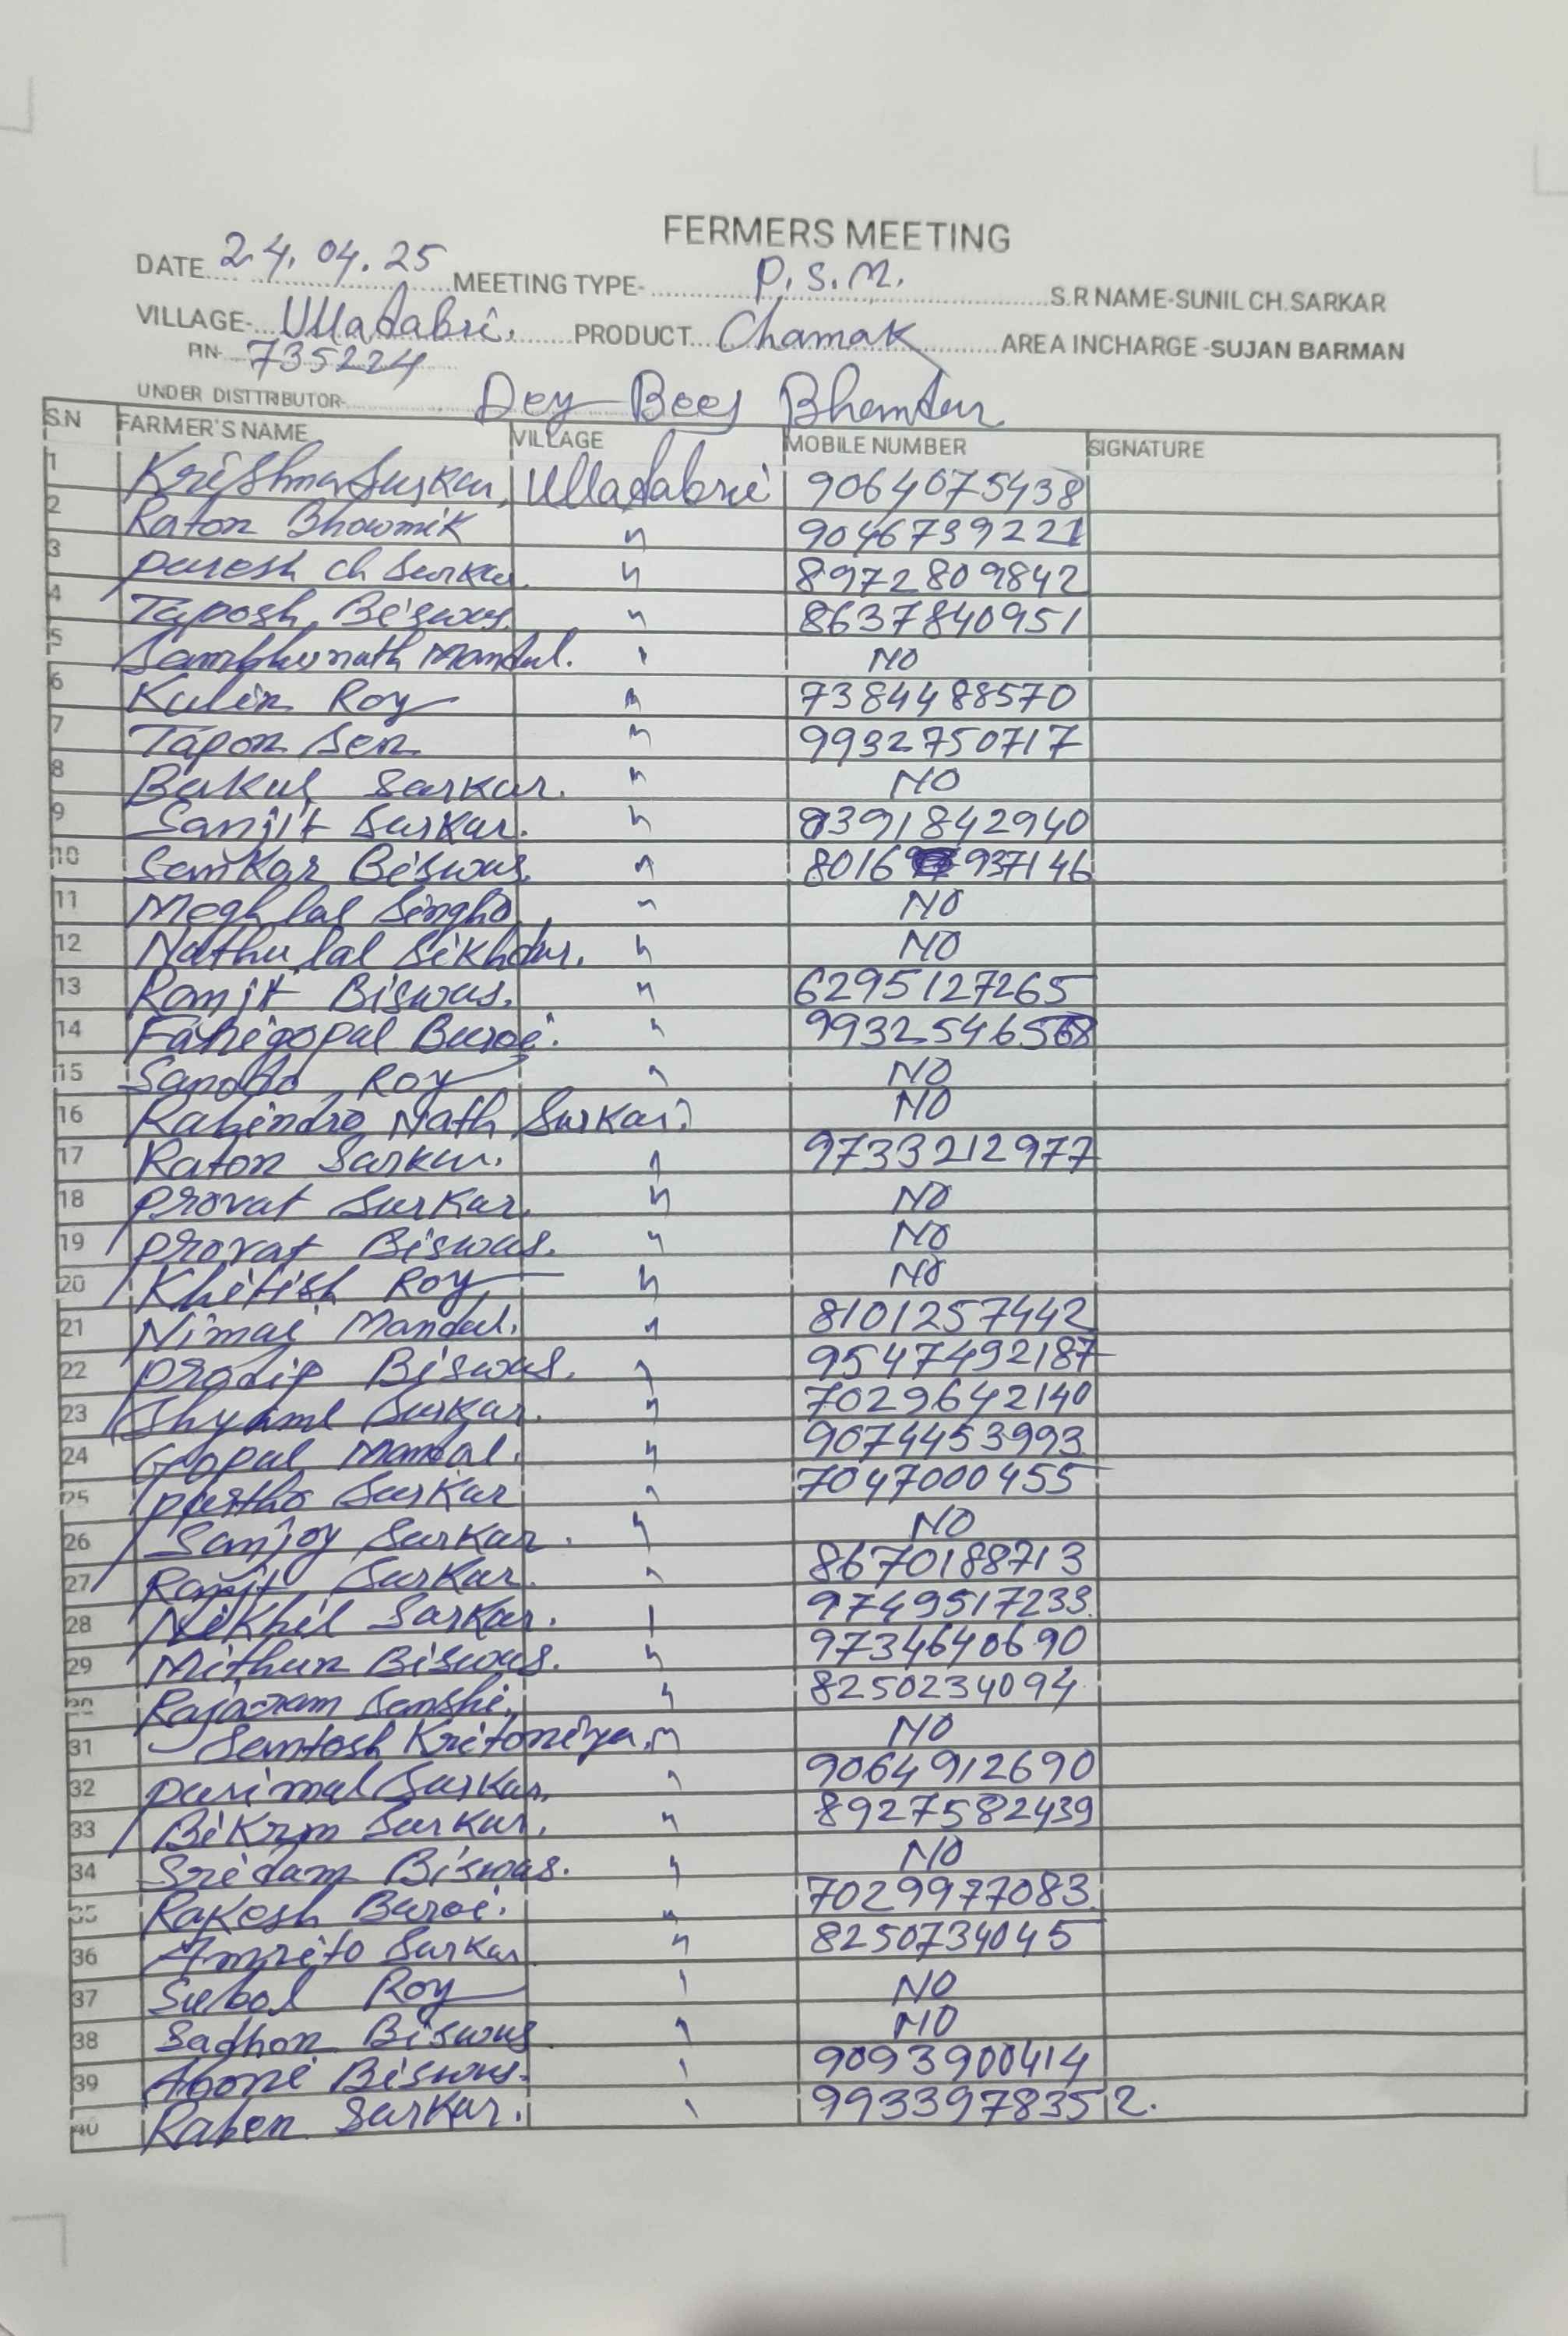 FERMERS MEETING
DATE 24.04.25 MEETING TYPE- P.S.M. S.R NAME-SUNIL CH.SARKAR
VILLAGE- Ulladabri. PRODUCT Chamak AREA INCHARGE -SUJAN BARMAN
PIN- 735224
UNDER DISTTRIBUTOR- Dey Bees Bhandar
S.N FARMER'S NAME VILLAGE MOBILE NUMBER SIGNATURE
1 Krishna Sarkar, Ulladabri 9064075438
2 Raton Bhowmik " 9046739221
3 paresh ch Sarkar " 8972809842
4 Taposh Biswas. " 8637840951
5 Sambhunath Mandal. " NO
6 Kulin Roy " 7384488570
7 Tapon Sen " 9932750717
8 Bakul Sarkar. " NO
9 Sanjit Sarkar. " 8391842940
10 Samkar Biswas. " 8016 937146
11 Megh lal Singho " NO
12 Nathu lal Sikhdar. " NO
13 Ranjit Biswas. " 6295127265
14 Fanigopal Baroi. " 9932546568
15 Roy " NO
16 Rabindro Nath Sarkar. NO
17 Raton Sarkar. " 9733212977
18 provat Sarkar. " NO
19 provat Biswas. " NO
20 Khitish Roy " NO
21 Nimai Mandal. " 8101257442
22 prodip Biswas. " 9547492187
23 Shyaml Sarkar. " 7029642140
24 Gopal Mandal. " 9074453993
25 partho Sarkar " 7047000455
26 Sanjoy Sarkar. " NO
27 Ranjit Sarkar. " 8670188713
28 Nikhil Sarkar. " 9749517233
29 Mithun Biswas. " 9734640690
30 Rajaram " 8250234094
31 Santosh Kritoniya. " NO
32 parimal Sarkar. " 9064912690
33 Bikrm Sarkar. " 8927582439
34 Sridam Biswas. " NO
35 Rakesh Baroi. " 7029977083
36 Amrito Sarkar " 8250734045
37 Subol Roy " NO
38 Sadhon Biswas " NO
39 Aboni Biswas. " 9093900414
40 Raben Sarkar. " 99339783512.